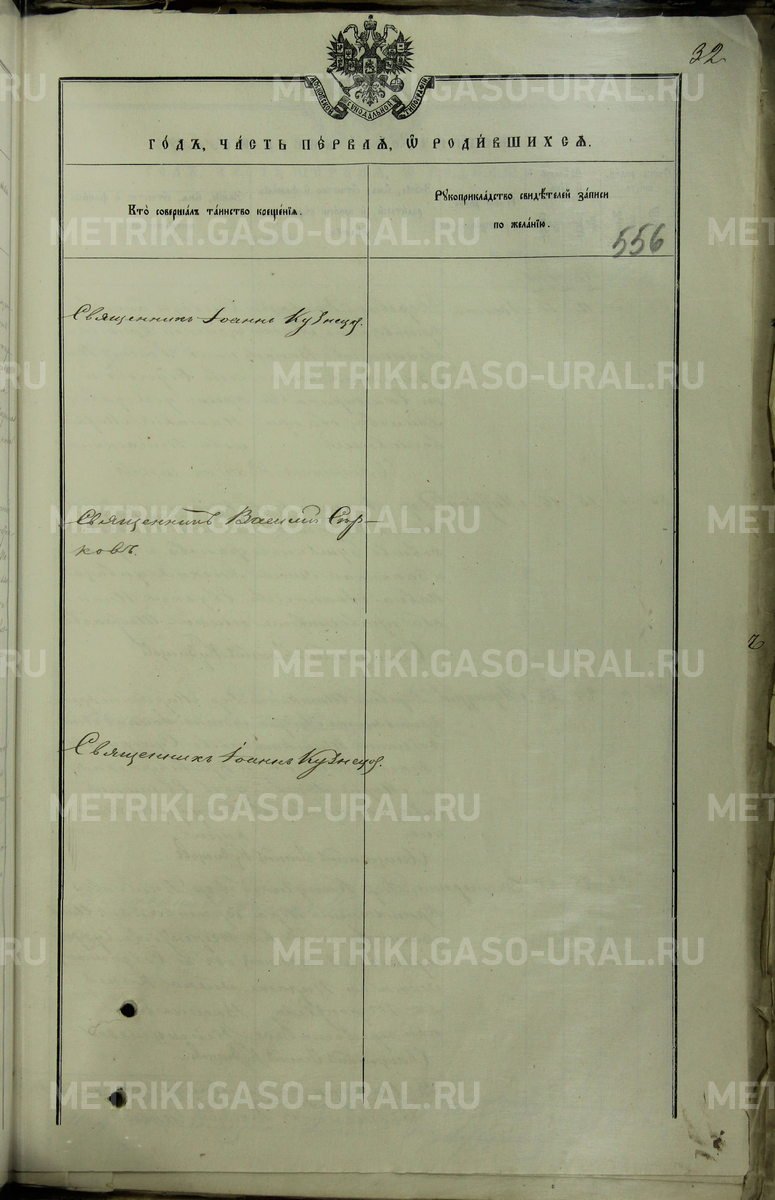 32
МОСКОВСКОЙ СѴНОДАЛЬНОЙ ТИПОГРАФІИ
ГО́ДЪ, ЧА́СТЬ ПЕ́РВАѦ, Ѽ РОДИ́ВШИХСѦ.
Кто̀ соверша́лъ та́инство креще́нїѧ.
Рꙋкоприкла́дство свидѣ́телей за́писи
по жела́нїю.
556
Священникъ Іоаннъ Кузнецов.
Священникъ Василій Сыр-
ковъ.
Священникъ Іоаннъ Кузнецов.
METRIKI.GASO-URAL.RU